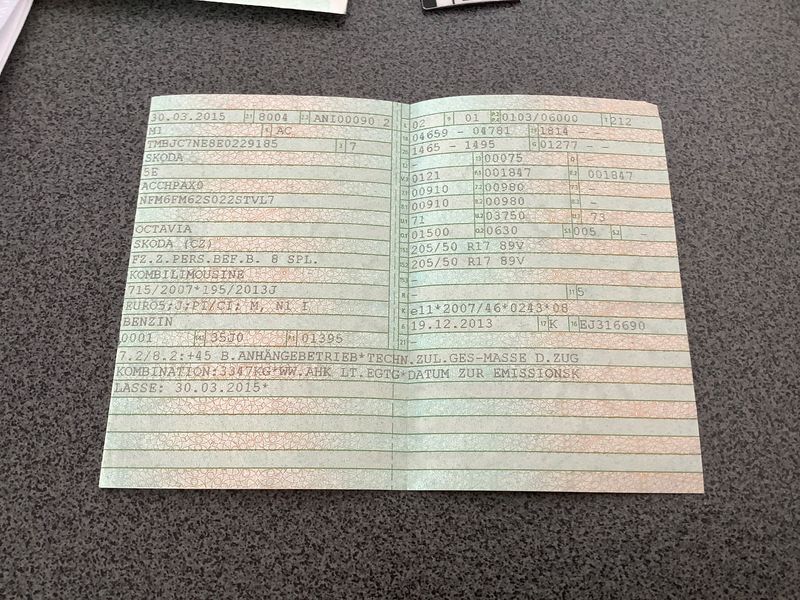 30.03.2015 2.1 8004 2.2 ANI00090 2
M1 4 AC
TMBJC7NE8E0229185 3 7
SKODA
5E
ACCHPAX0
NFM6FM62S022STVL7
OCTAVIA
SKODA (CZ)
FZ.Z.PERS.BEF.B. 8 SPL.
KOMBILIMOUSINE
715/2007*195/2013J
EURO5;J;PI/CI; M, N1 I
BENZIN
0001 35J0 01395
02 9 01 0103/06000 T 212
04659 - 04781 1814 - -
1465 - 1495 G 01277 - -
- 00075 -
0121 001847 001847
00910 00980 -
00910 00980 -
71 03750 73
01500 0630 005 -
205/50 R17 89V
205/50 R17 89V
-
- 5
e11*2007/46*0243*08
19.12.2013 17 K 16 EJ316690
7.2/8.2:+45 B.ANHÄNGEBETRIEB*TECHN.ZUL.GES-MASSE D.ZUG
KOMBINATION:3347KG*WW.AHK LT.EGTG*DATUM ZUR EMISSIONSK
LASSE: 30.03.2015*